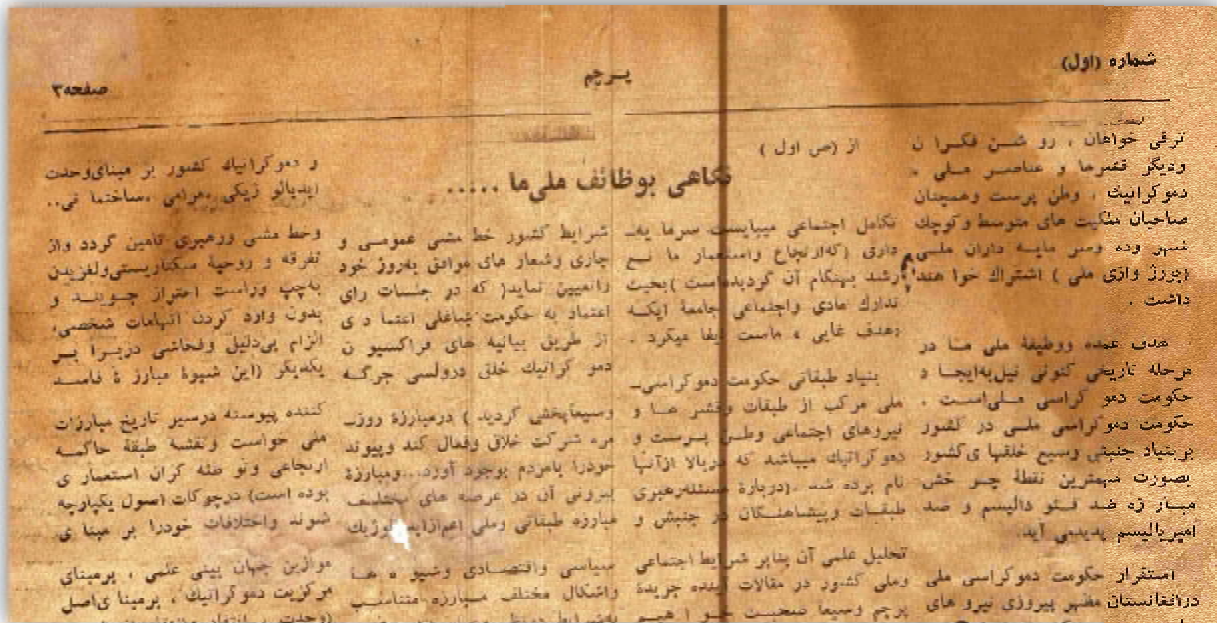 شماره (اول)
پرچم
صفحه ۳
ترقی خواهان ، رو شن فکرا ن
ودیگر قشرها و عناصر ملی ،
دموکراتیک ، وطن پرست وهمچنان
صاحبان ملکیت های متوسط وکوچک
شهر وده وسر مایه داران ملی
(بورژ وازی ملی ) اشتراک خوا هند
داشت .
هدف عمده ووظیفهٔ ملی ما در
مرحله تاریخی کنونی نیل به ایجا د
حکومت دمو کراسی ملی است .
حکومت دمو کراسی ملی در کشور
بر بنیاد جنبش وسیع خلقها ی کشور
بصورت مهمترین نقطهٔ چر خش
مبار زه ضد فئو دالیسم و ضد
امپریالیسم پدید می آید.
استقرار حکومت دموکراسی ملی
در افغانستان مظهر پیروزی نیرو های
از (ص اول )
نگاهی بوظائف ملی ما .....
تکامل اجتماعی میبایست سرما یه_
داری (که ارتجاع واستعمار ما نع
رشد بهنگام آن گردیده است ) بحیث
تدارک مادی واجتماعی جامعهٔ ایکه
«هدف غایی » ماست ایفا میکرد .
بنیاد طبقاتی حکومت دموکراسی_
ملی مرکب از طبقات وقشر ها و
نیروهای اجتماعی وطن پرست و
دموکراتیک میباشد که در بالا از آنها
نام برده شد . (در بارهٔ مسئله رهبری
طبقات وپیشاهنگان در جنبش و
تحلیل علمی آن بنابر شرایط اجتماعی
وملی کشور در مقالات آینده جریدهٔ
پرچم وسیعا صحبت خو ا هیم
شرایط کشور خط مشی عمومی و
جاری وشعار های موافق به روز خود
را تعیین نماید( که در جلسات رای
اعتماد به حکومت ښاغلی اعتما د ی
از طریق بیانیه های فراکسیو ن
دمو کراتیک خلق در ولسی جرگه
وسیعا پخش گردید ) در مبارزهٔ روز_
مره شرکت خلاق وفعال کند وپیوند
خودرا بامردم بوجود آورد... ومبارزهٔ
بیرونی آن در عرصه های مختلف
مبارزه طبقاتی وملی اعم از ایدیولوژیک
سیاسی واقتصادی وشیو ه ها
واشکال مختلف مبارزه متناسب
به شرایط
و دموکراتیک کشور بر مبنای وحدت
ایدیالو ژیکی ، مرامی ، ساختما نی..
وخط مشی ورهبری تامین گردد واز
تفرقه و روحیهٔ سکتاریستی ولغزیدن
به چپ وراست احتراز جویند و
بدون وارد کردن اتهامات شخصی،
الزام بی دلیل وفحاشی در برا بر
یکدیگر (این شیوهٔ مبارز ه فاسد
کننده پیوسته در سیر تاریخ مبارزات
ملی خواست ونقشه طبقهٔ حاکمه
ارتجاعی وتو طئه گران استعمار ی
بوده است) در چوکات اصول یکپارچه
شوند واختلافات خودرا بر مبنا ی
موازین جهان بینی علمی ، بر مبنای
مرکزیت دموکراتیک ، بر مبنا ی اصل
(وحدت _ انتقاد